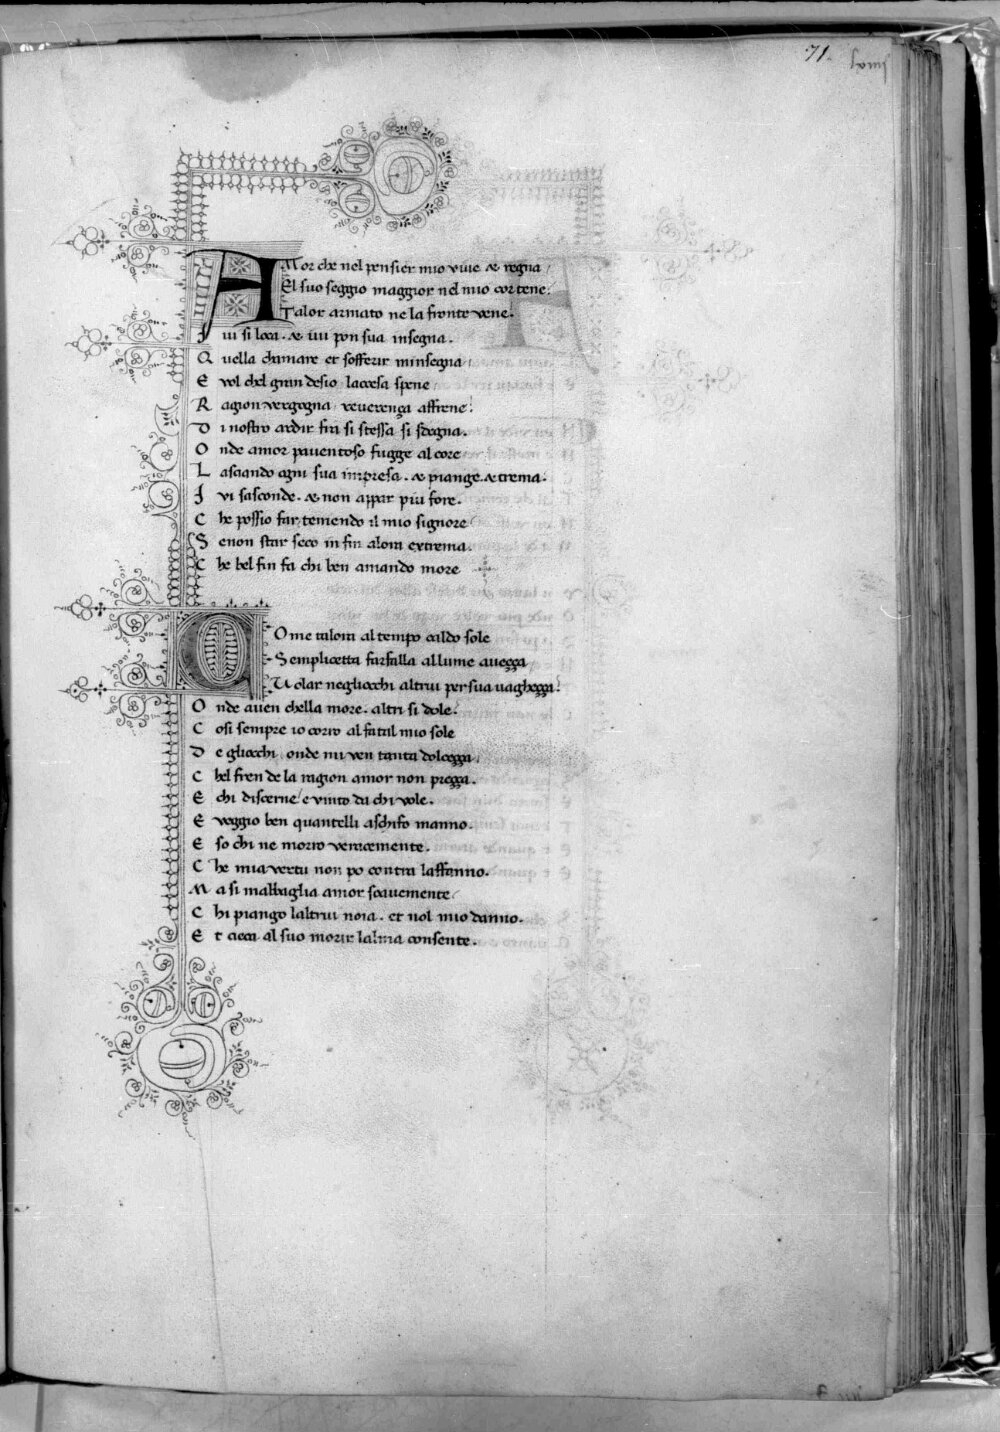 71.
lxxiiij
AMor che nel pensier mio viue & regna
El suo seggio maggior nel mio cor tene.
Talor armato ne la fronte vene.
I ui si loca. & iui pon sua insegna.
Q uella chamare et sofferir minsegna
E vol chel gran desio laccesa spene
R agion vergogna reuerença affrene.
D i nostro ardir fra si stessa si sdegna.
O nde amor pauentoso fugge al core
L asciando ogni sua impresa. & piange. & trema.
I vi sasconde. & non appar piu fore.
C he possio far temendo il mio signore
S enon star seco in fin alora extrema.
C he bel fin fa chi ben amando more
COme talora al tempo caldo sole
Semplicetta farfalla al lume auezza
Uolar negliocchi altrui per sua uaghezza.
O nde auen chella more. altri si dole.
C osi sempre io corro al fatal mio sole
D e gliocchi onde mi ven tanta dolcezza
C hel fren de la ragion amor non prezza.
E chi discerne e vinto da chi vole.
E veggio ben quantelli aschifo manno.
E so chi ne morro veracemente.
C he mia vertu non po contra laffanno.
M a si mabbaglia amor soauemente
C hi piango laltrui noia. et nol mio danno.
E t cieca al suo morir lalma consente.